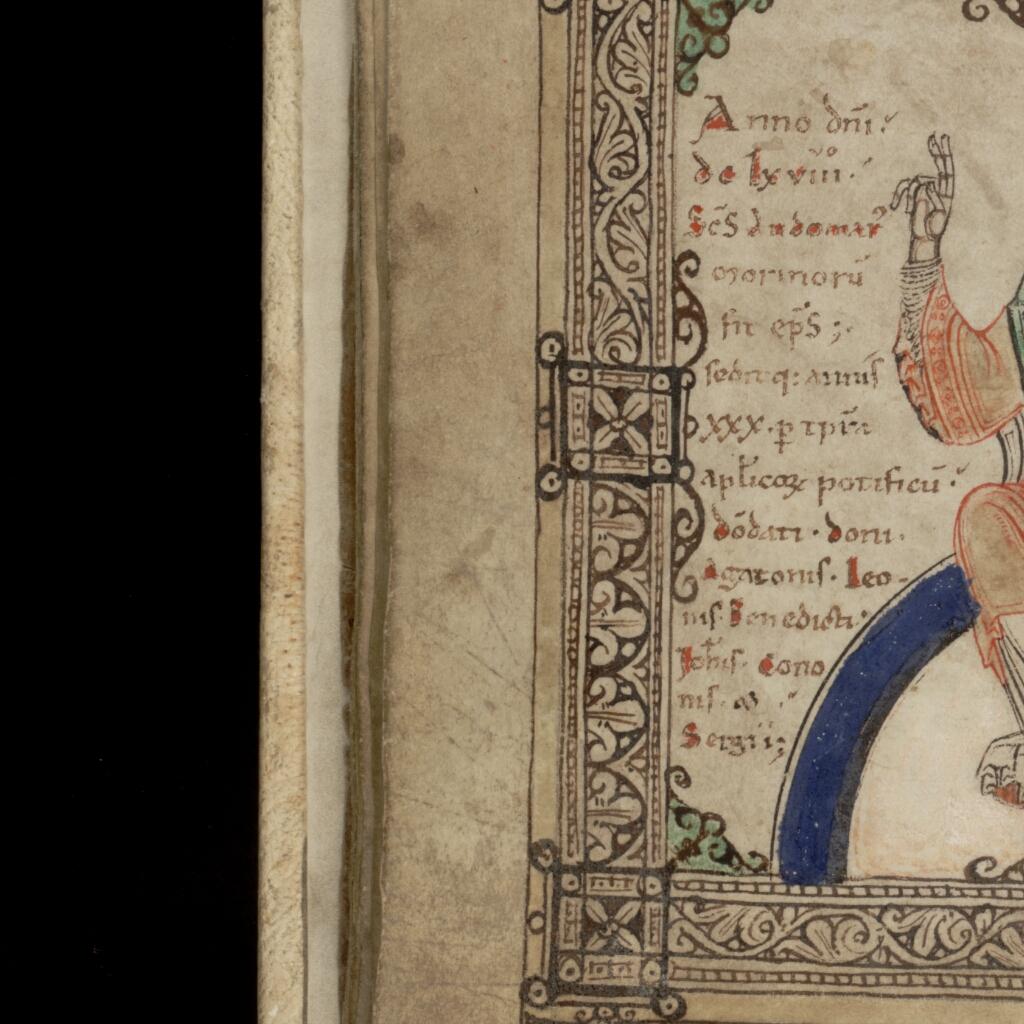 Anno dn̄i·
dc lxviii·
Sc̄s Audomar᷒
morinorū
fit ep̄s ;
sedit q: annis
xxx· ꝑ tp̄ra
apl̄icoꝝ pōtificū·
dōdati· doni·
Agatonis· Leo-
nis· Benedicti·
Joh̄is· Cono
nis·
Sergii;